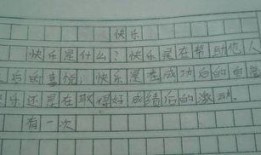 快乐
快乐是什么?快乐是在帮助他人
后的喜悦 快乐是在成功后的
还是在取得好成绩后的激动
有一次